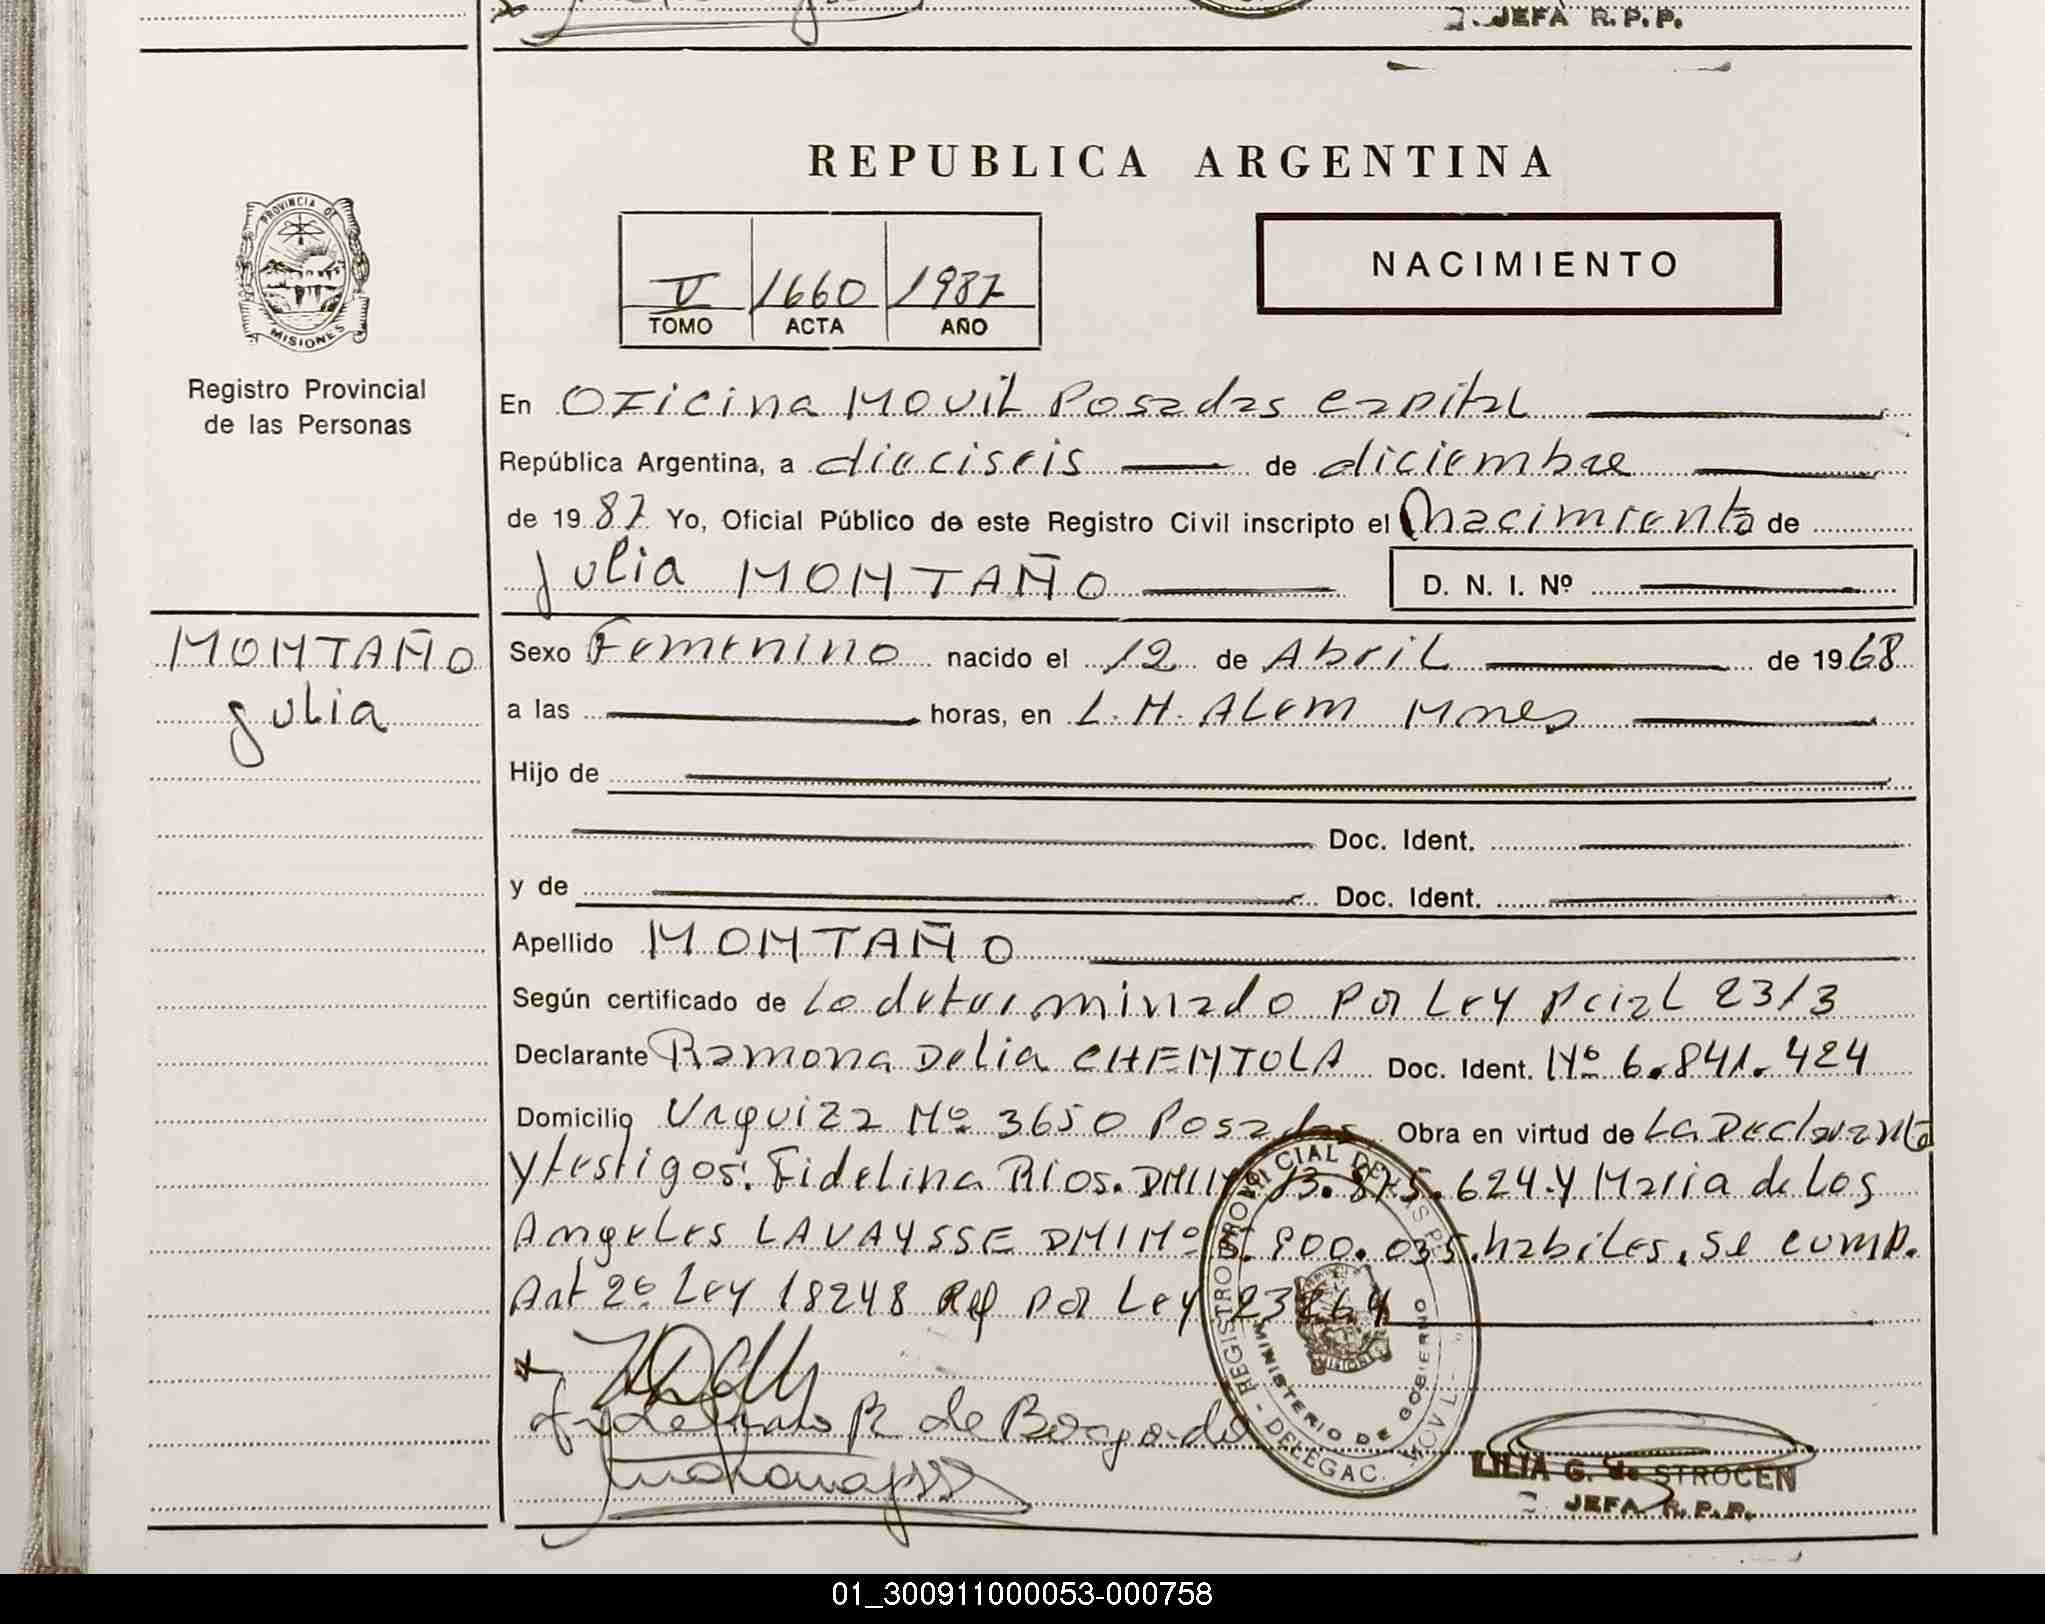 JEFA R.P.P.
REPUBLICA ARGENTINA
PROVINCIA DE
MISIONES
Registro Provincial
de las Personas
V 1660 1987
TOMO ACTA AÑO
NACIMIENTO
En Oficina Movil Posadas capital
República Argentina, a dieciseis de diciembre
de 1987 Yo, Oficial Público de este Registro Civil inscripto el Nacimiento de
Julia MONTAÑO D. N. I. Nº
MONTAÑO
Julia
Sexo Femenino nacido el 12 de Abril de 1968
a las horas, en L.N. Alem Mnes
Hijo de
Doc. Ident.
y de Doc. Ident.
Apellido MONTAÑO
Según certificado de Lo determinado por Ley Pcial 2313
Declarante Ramona Delia CHENTOLA Doc. Ident. Nº 6.841.424
Domicilio Urquiza Nº 3650 Posadas Obra en virtud de La Declarante
y testigos: Fidelina Rios. DNI Nº 13.875.624 y Maria de Los
Angeles LAVAYSSE DNI Nº 900.035. habiles, se cump.
Art 2º Ley 18248 Ref por Ley 23264
REGISTRO PROVINCIAL DE LAS PE
MINISTERIO DE GOBIERNO
DELEGAC. MOVIL
MISIONES
R. de Borgado
LILIA G. de STROCEN
JEFA R.P.P.
01_300911000053-000758